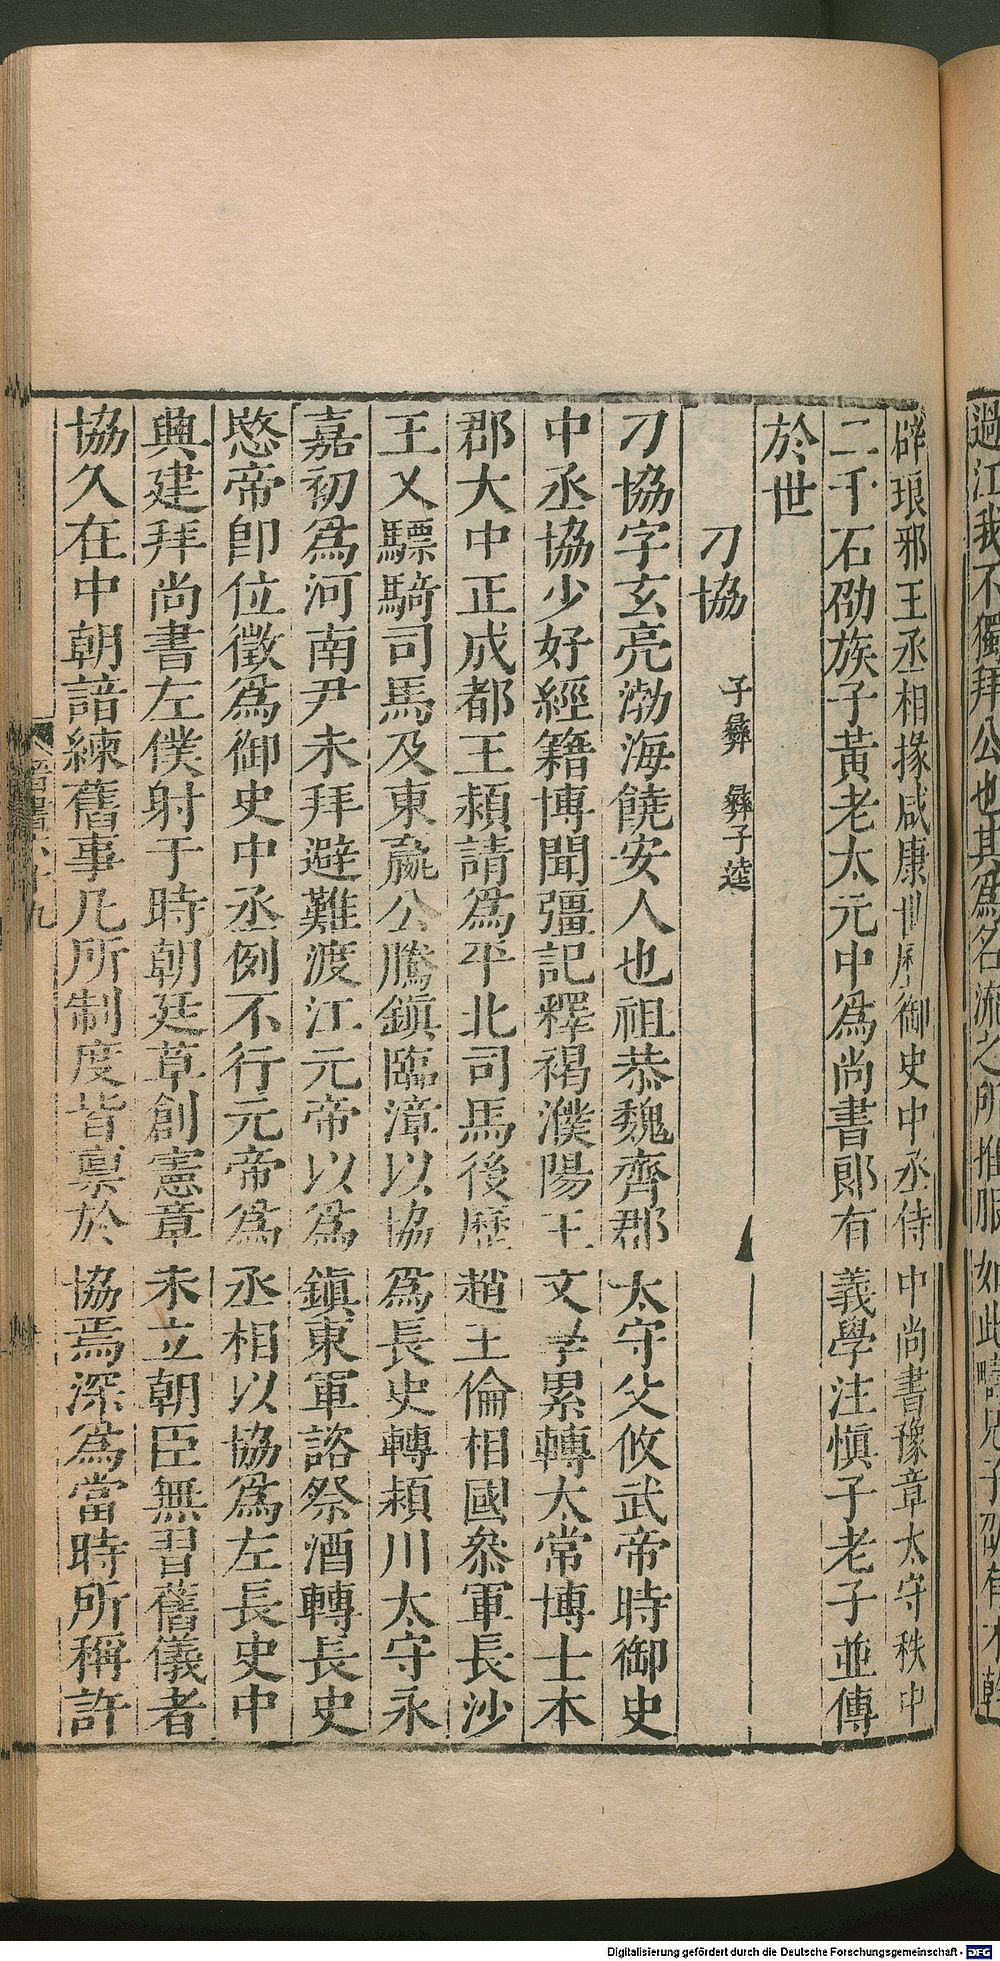 過江我不獨拜公也其爲名流之所推服如此疇兄子邵有才幹
辟琅邪王丞相掾咸康世歷御史中丞侍中尚書豫章太守秩中
二千石邵族子黃老太元中爲尚書郎有義學注愼子老子並傳
於世
刁協 子彝 彝子逵
刁協字玄亮渤海饒安人也祖恭魏齊郡太守父攸武帝時御史
中丞協少好經籍博聞彊記釋褐濮陽王文學累轉太常博士本
郡大中正成都王穎請爲平北司馬後歷趙王倫相國參軍長沙
王乂驃騎司馬及東嬴公騰鎭臨漳以協爲長史轉潁川太守永
嘉初爲河南尹未拜避難渡江元帝以爲鎭東軍諮祭酒轉長史
愍帝卽位徵爲御史中丞例不行元帝爲丞相以協爲左長史中
興建拜尚書左僕射于時朝廷草創憲章未立朝臣無習舊儀者
協久在中朝諳練舊事凡所制度皆稟於協焉深爲當時所稱許
Digitalisierung gefördert durch die Deutsche Forschungsgemeinschaft - DFG